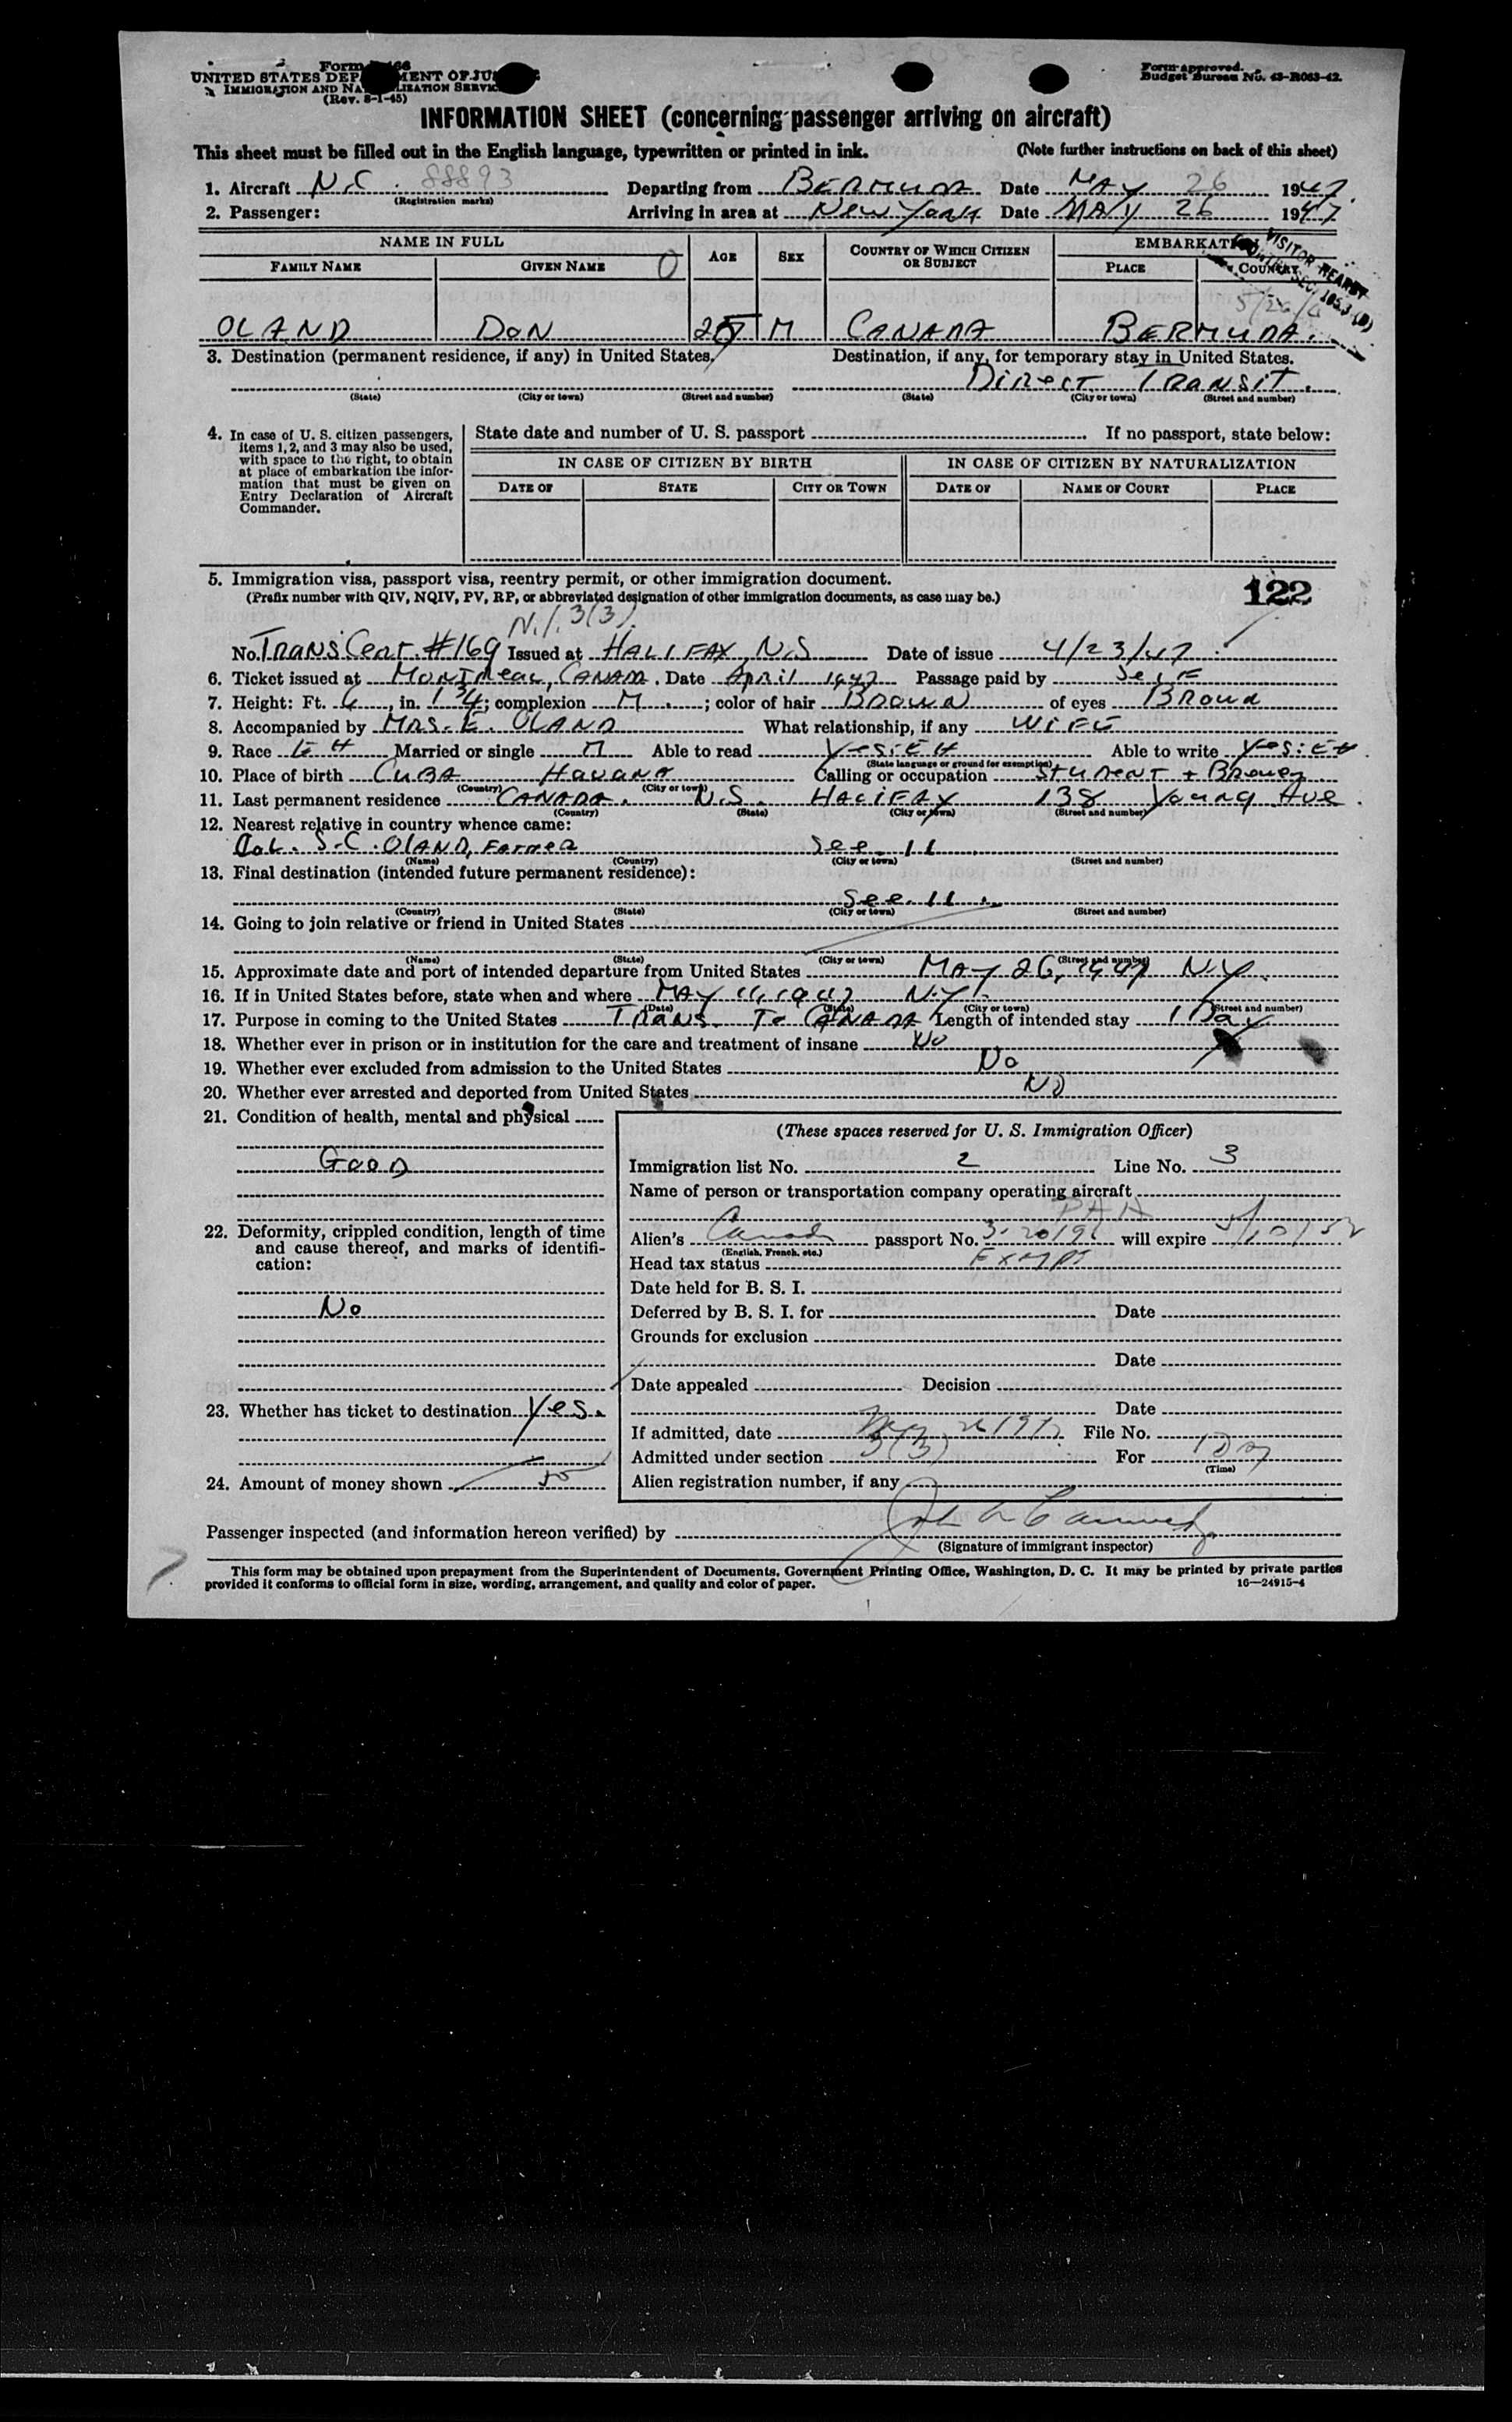 Form 466
UNITED STATES DEPARTMENT OF JUSTICE
IMMIGRATION AND NATURALIZATION SERVICE
(Rev. 8-1-45)
Form approved.
Budget Bureau No. 43-R063-42.
INFORMATION SHEET (concerning passenger arriving on aircraft)
This sheet must be filled out in the English language, typewritten or printed in ink. (Note further instructions on back of this sheet)
1. Aircraft N.C. 88893 Departing from BERMUDA Date MAY 26 1947.
(Registration marks)
2. Passenger: Arriving in area at New York Date MAY 26 1947
NAME IN FULL AGE SEX COUNTRY OF WHICH CITIZEN OR SUBJECT EMBARKATION
FAMILY NAME GIVEN NAME O PLACE COUNTRY
VISITOR
5/26/4
OLAND DON 25 M CANADA BERMUDA.
3. Destination (permanent residence, if any) in United States. Destination, if any, for temporary stay in United States.
Direct Transit.
(State) (City or town) (Street and number) (State) (City or town) (Street and number)
4. In case of U. S. citizen passengers, items 1, 2, and 3 may also be used, with space to the right, to obtain at place of embarkation the information that must be given on Entry Declaration of Aircraft Commander.
State date and number of U. S. passport If no passport, state below:
IN CASE OF CITIZEN BY BIRTH IN CASE OF CITIZEN BY NATURALIZATION
DATE OF STATE CITY OR TOWN DATE OF NAME OF COURT PLACE
5. Immigration visa, passport visa, reentry permit, or other immigration document. 122
(Prefix number with QIV, NQIV, PV, RP, or abbreviated designation of other immigration documents, as case may be.)
3(3)
No. Trans Cert. #169 Issued at HALIFAX N.S Date of issue 4/23/47
6. Ticket issued at Montreal, CANADA. Date April 1947 Passage paid by Self
7. Height: Ft. 6, in. 1 3/4; complexion M.; color of hair Brown of eyes Brown
8. Accompanied by MRS. E. OLAND What relationship, if any WIFE
9. Race EH Married or single M Able to read Yes: EH Able to write Yes: EH
(State language or ground for exemption)
10. Place of birth CUBA Havana Calling or occupation Student + Brewer
(Country) (City or town)
11. Last permanent residence CANADA. N.S. HALIFAX 138 Young Ave.
(Country) (State) (City or town) (Street and number)
12. Nearest relative in country whence came:
Col. S.C. OLAND, Father See 11
(Name) (Country) (City or town) (Street and number)
13. Final destination (intended future permanent residence):
See 11.
(Country) (State) (City or town) (Street and number)
14. Going to join relative or friend in United States
(Name) (State) (City or town) (Street and number)
15. Approximate date and port of intended departure from United States MAY 26, 1947 N.Y.
16. If in United States before, state when and where MAY 11, 1947 N.Y.
(Date) (State) (City or town) (Street and number)
17. Purpose in coming to the United States Trans. To CANADA Length of intended stay 1 Day
18. Whether ever in prison or in institution for the care and treatment of insane No
19. Whether ever excluded from admission to the United States No
20. Whether ever arrested and deported from United States NO
21. Condition of health, mental and physical
Good
22. Deformity, crippled condition, length of time and cause thereof, and marks of identification:
No
23. Whether has ticket to destination Yes.
24. Amount of money shown 50
(These spaces reserved for U. S. Immigration Officer)
Immigration list No. 2 Line No. 3
Name of person or transportation company operating aircraft
PAA
Alien's Canada passport No. will expire 5/10/52
(English, French, etc.)
Head tax status Exmpt
Date held for B. S. I.
Deferred by B. S. I. for Date
Grounds for exclusion
Date
Date appealed Decision
Date
If admitted, date May 26 1947 File No.
Admitted under section 3(3) For 1 Day
(Time)
Alien registration number, if any
Passenger inspected (and information hereon verified) by
(Signature of immigrant inspector)
This form may be obtained upon prepayment from the Superintendent of Documents, Government Printing Office, Washington, D. C. It may be printed by private parties
provided it conforms to official form in size, wording, arrangement, and quality and color of paper. 16—24915-4